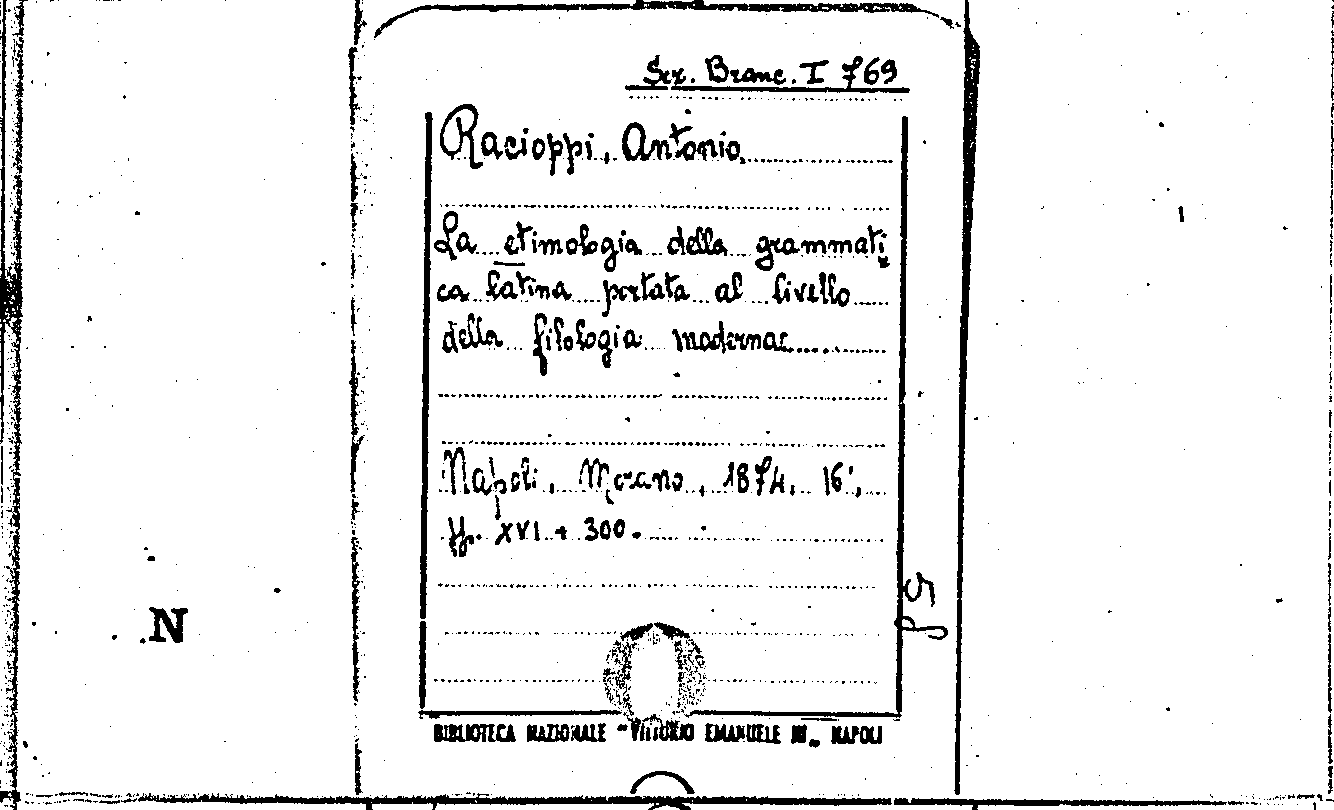 Sez. Branc. I 769
Racioppi, Antonio
La etimologia della grammati
ca latina portata al livello
della filologia moderna
Napoli, Morano, 1874, 16°,
pp. XVI + 300.
N
BIBLIOTECA NAZIONALE "VITTORIO EMANUELE III" NAPOLI